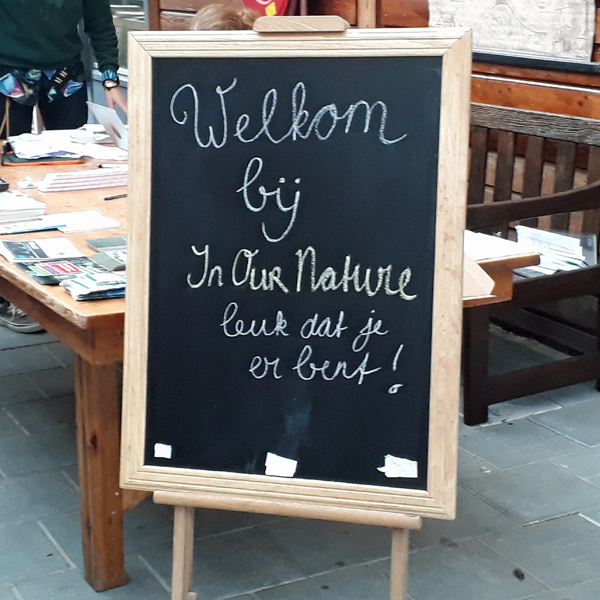 Welkom
bij
In Our Nature
leuk dat je
er bent!